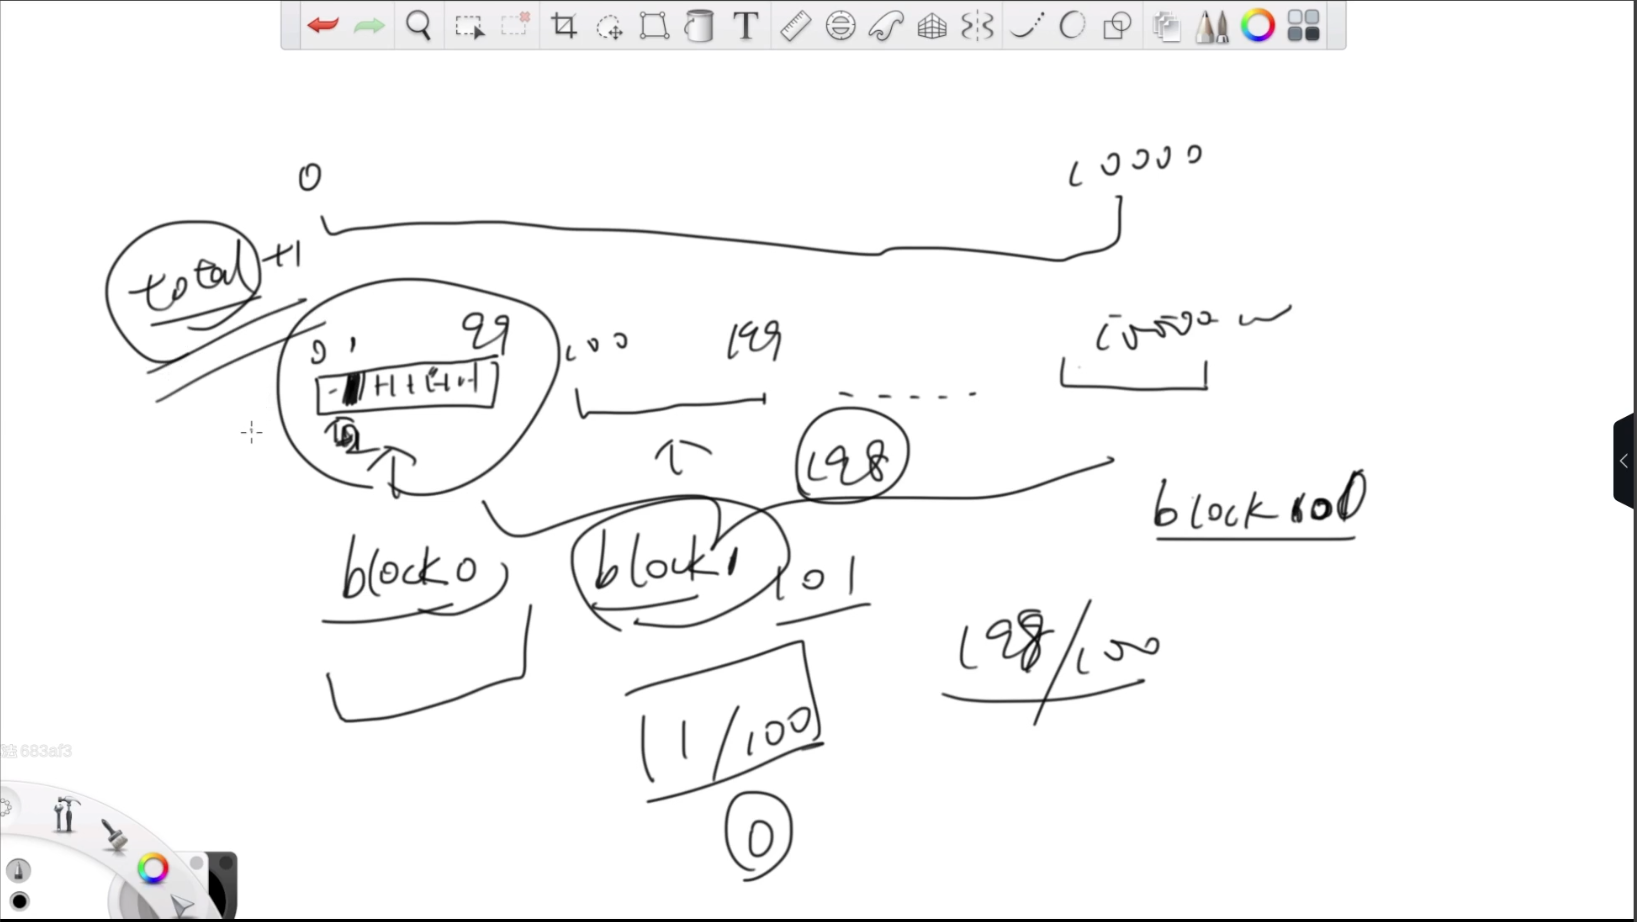 0 10000
total +1
0 1 99 100 199 10000
198
block 100
block 0 block 1 101
198/100
11/100
0
683af3